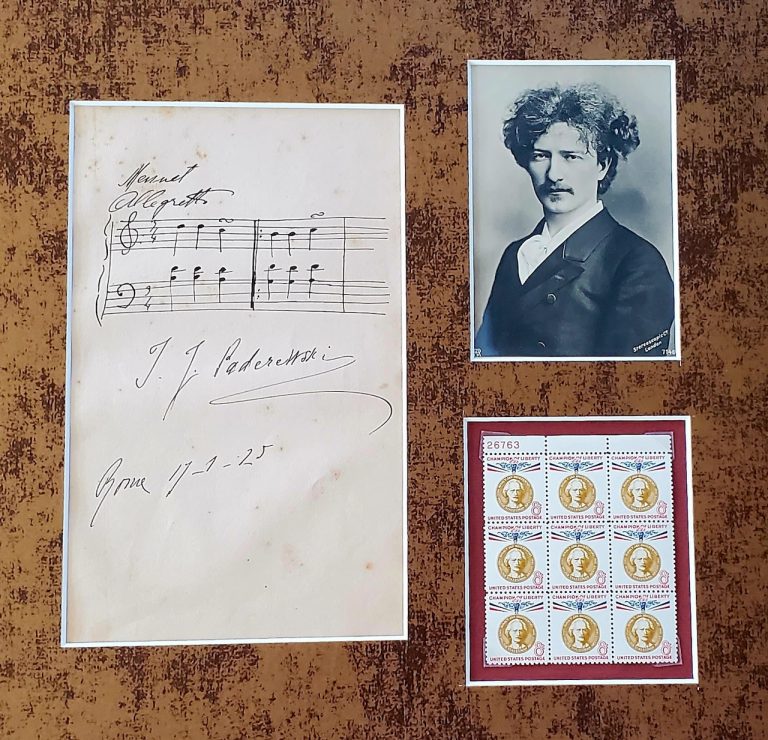 Menuet
Allegretto
I. J. Paderewski
Rome 17-1-25
Stereoscopic Co
London
7146
26763
CHAMPION OF LIBERTY CHAMPION OF LIBERTY CHAMPION OF LIBERTY
8¢ 8¢ 8¢
UNITED STATES POSTAGE UNITED STATES POSTAGE UNITED STATES POSTAGE
CHAMPION OF LIBERTY CHAMPION OF LIBERTY CHAMPION OF LIBERTY
8¢ 8¢ 8¢
UNITED STATES POSTAGE UNITED STATES POSTAGE UNITED STATES POSTAGE
CHAMPION OF LIBERTY CHAMPION OF LIBERTY CHAMPION OF LIBERTY
8¢ 8¢ 8¢
UNITED STATES POSTAGE UNITED STATES POSTAGE UNITED STATES POSTAGE